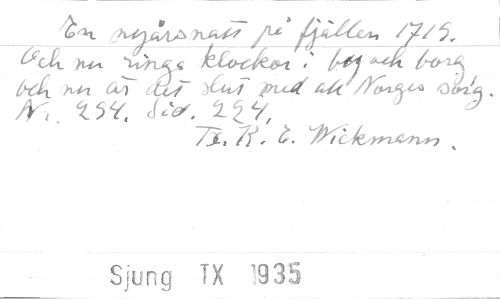 En nyårsnatt på fjällen 1719.
Och nu ringa klockor i by och borg
och nu är det slut med all Norges sorg.
Nr. 254. Sid. 224.
Te. K. E. Wickmann.
Sjung TX 1935